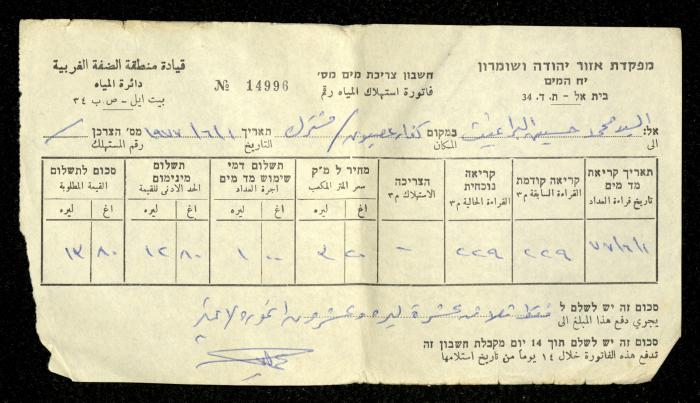 מפקדת אזור יהודה ושומרון
יח המים
בית אל - ת. ד. 34
חשבון צריכת מים מס׳ № 14996
فاتورة استهلاك المياه رقم
قيادة منطقة الضفة الغربية
دائرة المياه
بيت ايل - ص. ب ٣٤
אל: السيد محمد حسين במקום كفار عصيون / مشترك תאריך ١٩٧٧/٦/١ מס׳ הצרכן /
الى المكان التاريخ رقم المستهلك
תאריך קריאת מד מים קריאה קודמת קריאה נוכחית הצריכה מחיר ל מ״ק תשלום דמי שימוש מד מים תשלום מינימום סכום לתשלום
تاريخ قراءة العداد القراءة السابقة م٣ القراءة الحالية م٣ الاستهلاك م٣ سعر المتر المكعب اجرة العداد الحد الادنى للقيمة القيمة المطلوبة
ليره اغ ليره اغ ليره اغ ليره اغ
٧٧/٦/١ ٢٢٩ ٢٢٩ - ١ ٠٠ ١٢ ٨٠ ١٣ ٨٠
סכום זה יש לשלם ל فقط ثلاثة عشرة ليره و
يجري دفع هذا المبلغ الى
סכום זה יש לשלם תוך 14 יום מקבלת חשבון זה
تدفع هذه الفاتورة خلال ١٤ يوما من تاريخ استلامها